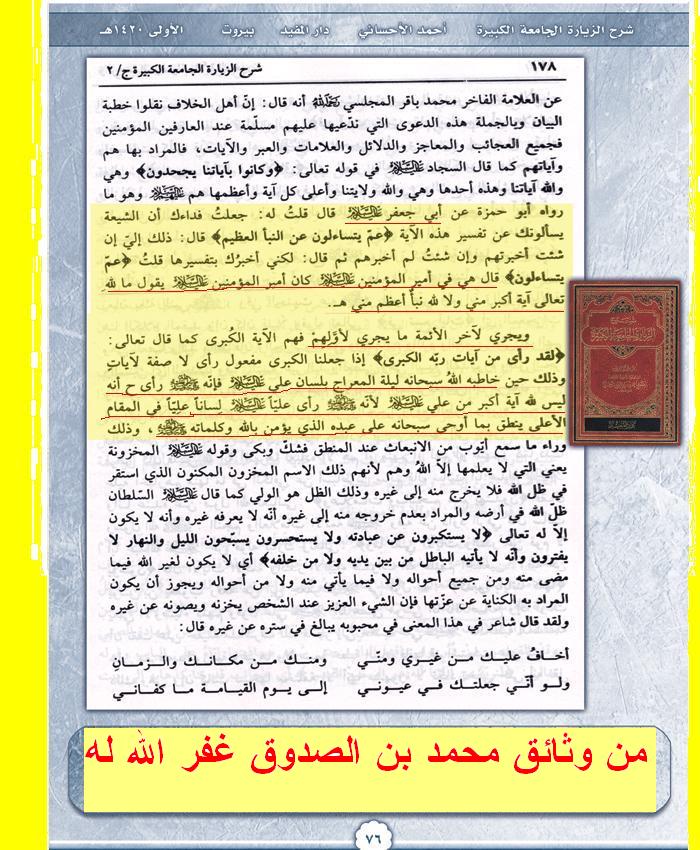 شرح الزيارة الجامعة الكبيرة أحمد الأحسائي دار المفيد بيروت الأولى ١٤٢٠هـ
١٧٨ شرح الزيارة الجامعة الكبيرة ج/٢
عن العلامة الفاخر محمد باقر المجلسي رحمه الله أنه قال: إنّ أهل الخلاف نقلوا خطبة
البيان وبالجملة هذه الدعوى التي ندّعيها عليهم مسلّمة عند العارفين المؤمنين
فجميع العجائب والمعاجز والدلائل والعلامات والعبر والآيات، فالمراد بها هم
وآياتهم كما قال السجاد عليه السلام في قوله تعالى: ﴿وكانوا بآياتنا يجحدون﴾ وهي
والله آياتنا وهذه أحدها وهي والله ولايتنا وأعلى كل آية وأعظمها هم عليهم السلام وهو ما
رواه أبو حمزة عن أبي جعفر عليه السلام قال قلتُ له: جعلتُ فداءك أن الشيعة
يسألونك عن تفسير هذه الآية ﴿عمّ يتساءلون عن النبأ العظيم﴾ قال: ذلك إليّ إن
شئت أخبرتهم وإن شئتُ لم أخبرهم ثم قال: لكني أخبرُك بتفسيرها قلتُ ﴿عمّ
يتساءلون﴾ قال هي في أمير المؤمنين عليه السلام كان أمير المؤمنين عليه السلام يقول ما للهِ
تعالى آية أكبر مني ولا لله نبأ أعظم مني هـ.
ويجري لآخر الأئمة ما يجري لأوّلهم فهم الآية الكُبرى كما قال تعالى:
﴿لقد رأى من آيات ربّه الكبرى﴾ إذا جعلنا الكبرى مفعول رأى لا صفة لآياتِ
وذلك حين خاطبه اللهُ سبحانه ليلة المعراج بلسان علي عليه السلام فإنّه صلى الله عليه وآله رأى ح أنه
ليس لله آية أكبر من علي عليه السلام لأنّه صلى الله عليه وآله رأى عليّاً عليه السلام لساناً عليّاً في المقام
الأعلى ينطق بما أوحى سبحانه على عبده الذي يؤمن بالله وكلماته صلى الله عليه وآله، وذلك
وراء ما سمع أيّوب من الانبعاث عند المنطق فشكّ وبكى وقوله عليه السلام المخزونة
يعني التي لا يعلمها إلاّ اللهُ وهم لأنهم ذلك الاسم المخزون المكنون الذي استقر
في ظل الله فلا يخرج منه إلى غيره وذلك الظل هو الولي كما قال عليه السلام السّلطان
ظلّ الله في أرضه والمراد بعدم خروجه منه إلى غيره أنّه لا يعرفه غيره وأنه لا يكون
إلاّ له تعالى ﴿لا يستكبرون عن عبادته ولا يستحسرون يسبّحون الليل والنهار لا
يفترون وأنّه لا يأتيه الباطل من بين يديه ولا من خلفه﴾ أي لا يكون لغير الله فيما
مضى منه ومن جميع أحواله ولا فيما يأتي منه ولا من أحواله ويجوز أن يكون
المراد به الكناية عن عزّتها فإن الشيء العزيز عند الشخص يخزنه ويصونه عن غيره
ولقد قال شاعر في هذا المعنى في محبوبه يبالغ في ستره عن غيره قال:
أخافُ عليك من غيري ومني ومنك من مكانك والزمانِ
ولو أنّي جعلتك في عيوني إلى يوم القيامة ما كفاني
من وثائق محمد بن الصدوق غفر الله له
٧٦